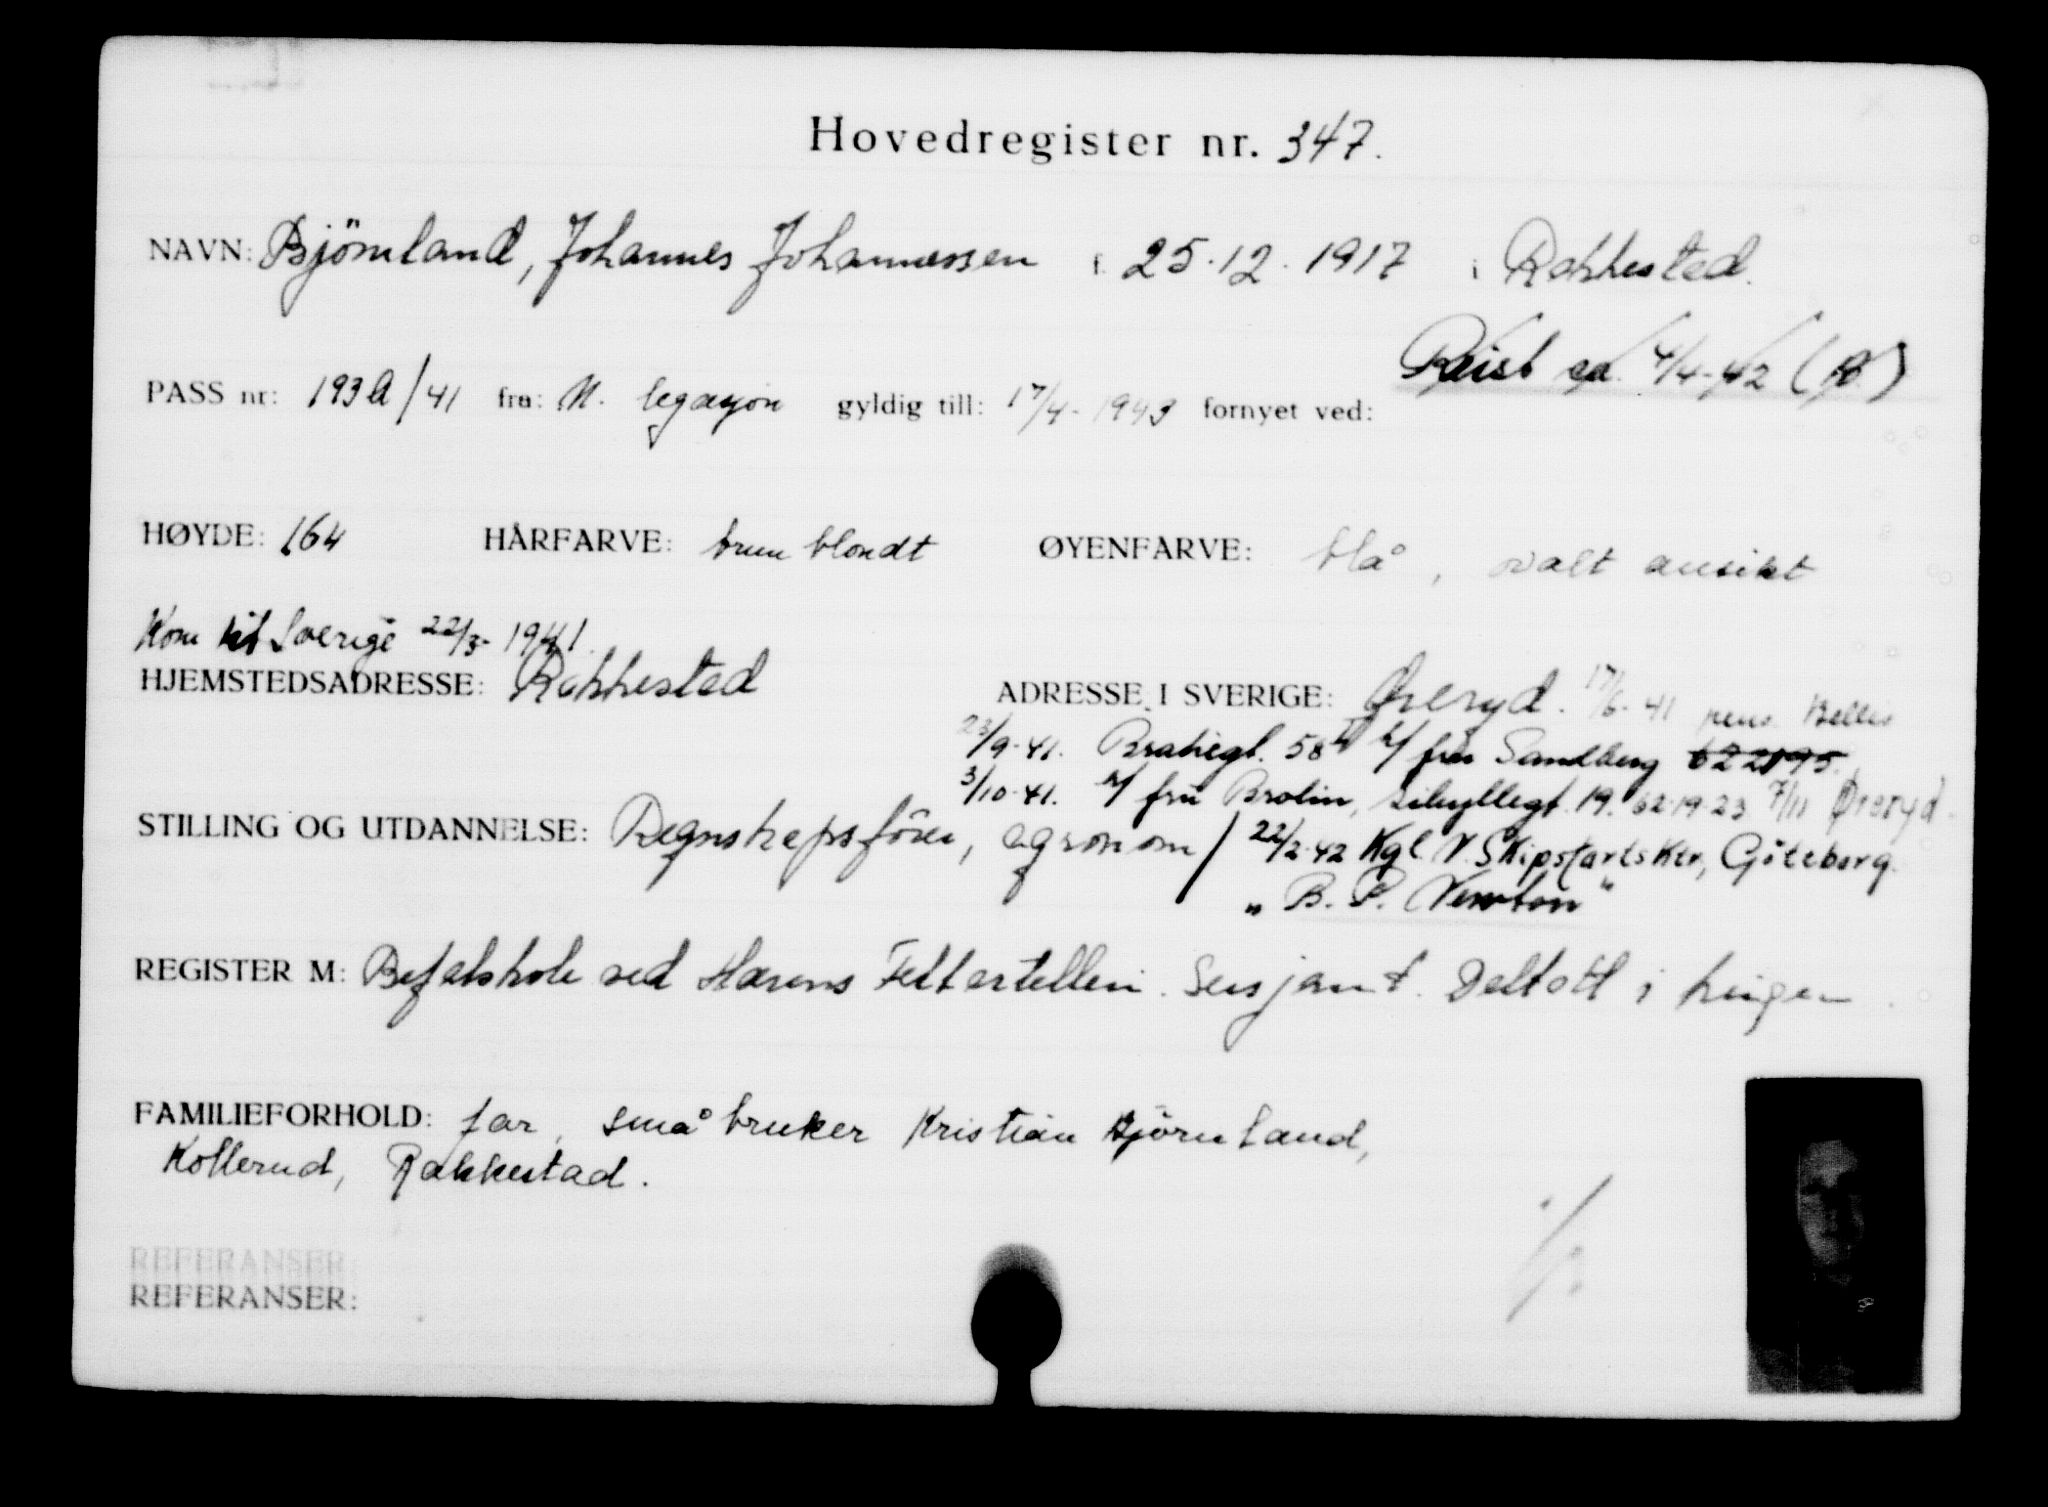 Hovedregister nr. 347.
NAVN: Björnland, Johannes Johannessen f. 25.12.1917 i Rakkestad.
Reist ca. 4/4-42 (B.)
PASS nr: 193A/41 fra: N. legasjon gyldig till: 17/4-1943 fornyet ved:
HØYDE: 164 HÅRFARVE: brun blondt ØYENFARVE: blå, ovalt ansikt
Kom til Sverige 22/3-1941.
HJEMSTEDSADRESSE: Rakkestad ADRESSE I SVERIGE: Øreryd. 17/6-41 pens Bellis
23/9-41. 58 c/o fru Sandberg 622195.
3/10-41. c/o fru Brolin, Sibyllegt. 19. 62-19-23 7/11 Øreryd.
STILLING OG UTDANNELSE: Regnskapsfører, agronom / 22/2-42 Kgl. N. Skipsfartsktr, Göteborg.
"B. P. Newton"
REGISTER M: Befalskole ved Hærens Feltartilleri. Sersjant. Deltatt i krigen
FAMILIEFORHOLD: far, småbruker Kristian Björnland,
Kollerud, Rakkestad.
REFERANSER:
REFERANSER: